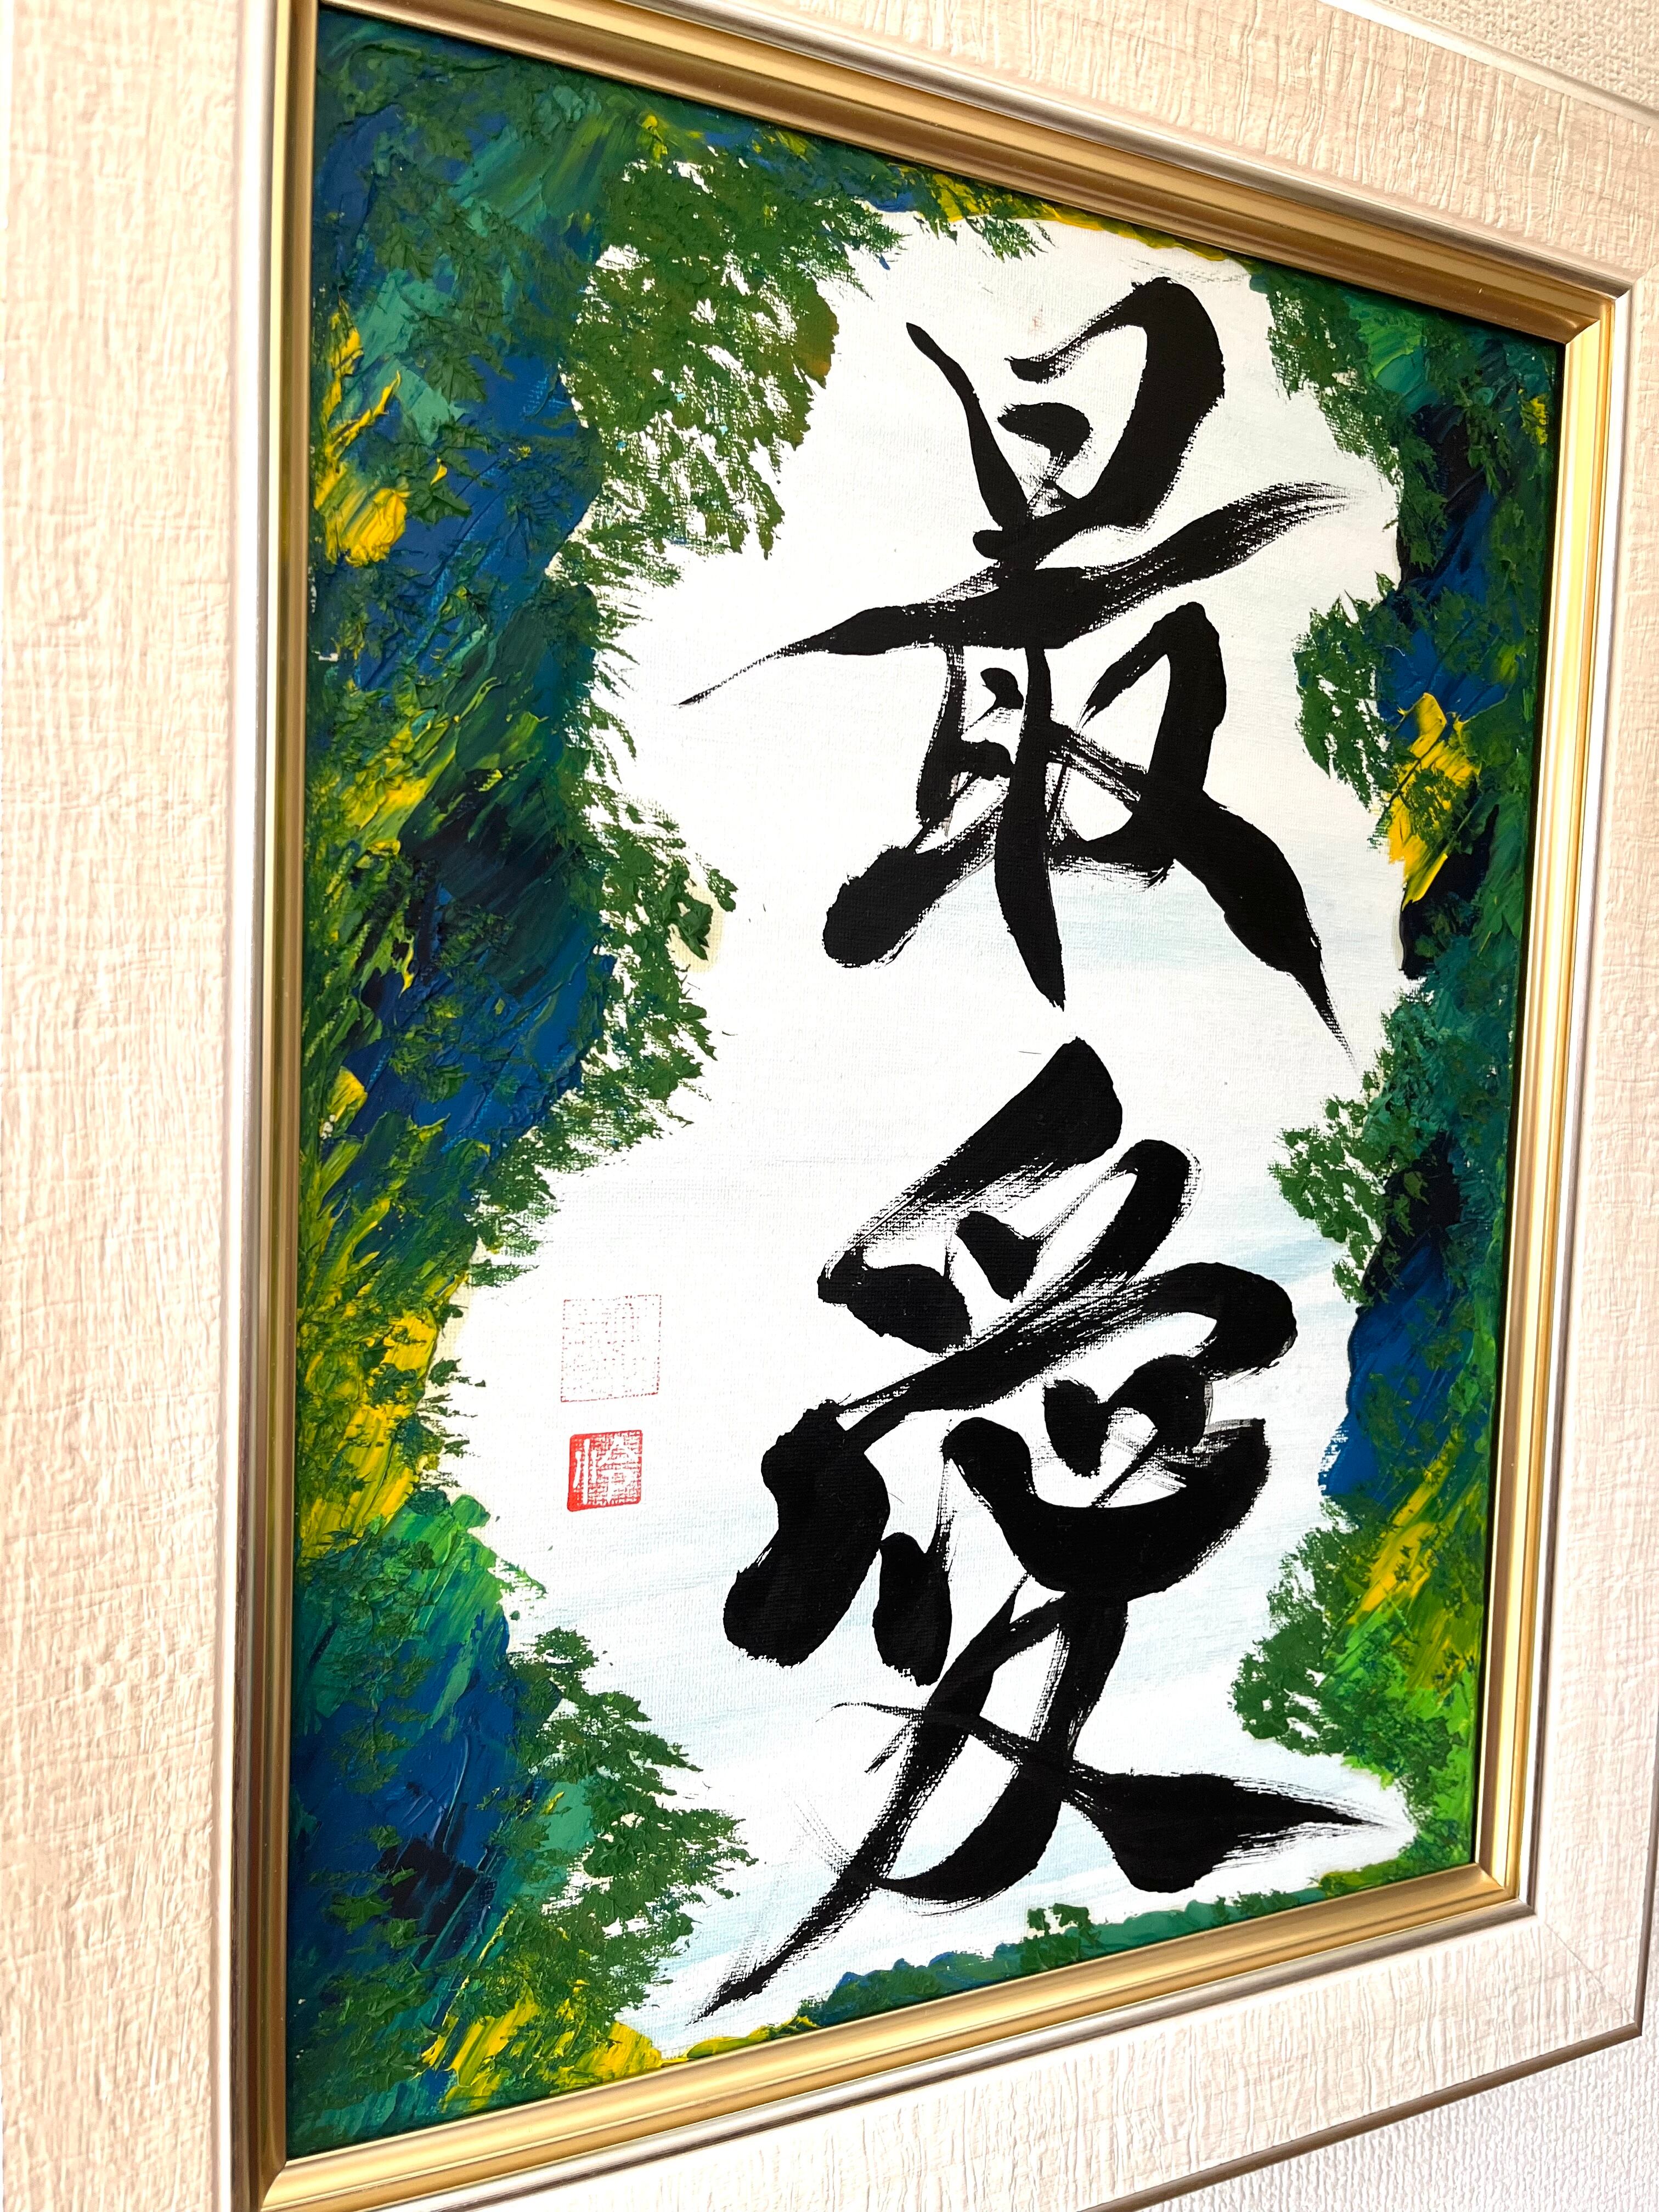 最愛
怜